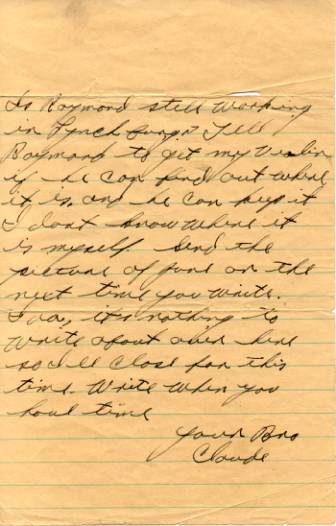 Is Raymond still working
in Lynchburg? Tell
Raymond to get my Violin
if he can find out where
it is. and he can keep it
I dont know where it
is myself. Send the
picture of June on the
next time you write.
it's nothing to
write about over here
so I'll close for this
time. Write when you
have time
Your Bro
Claude